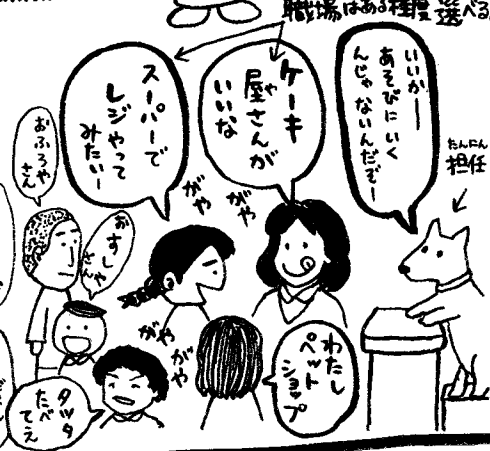 職場はある程度選べる
いいかー
あそびにいく
んじゃないんだぞー
たんにん
担任
ケーキ
屋さんが
いいな
や
スーパーで
レジやって
みたいー
がや
がや
おふろや
さん
おすしや
さん
がや
がや
わたし
ペット
ショップ
タツタ
たべ
てえ